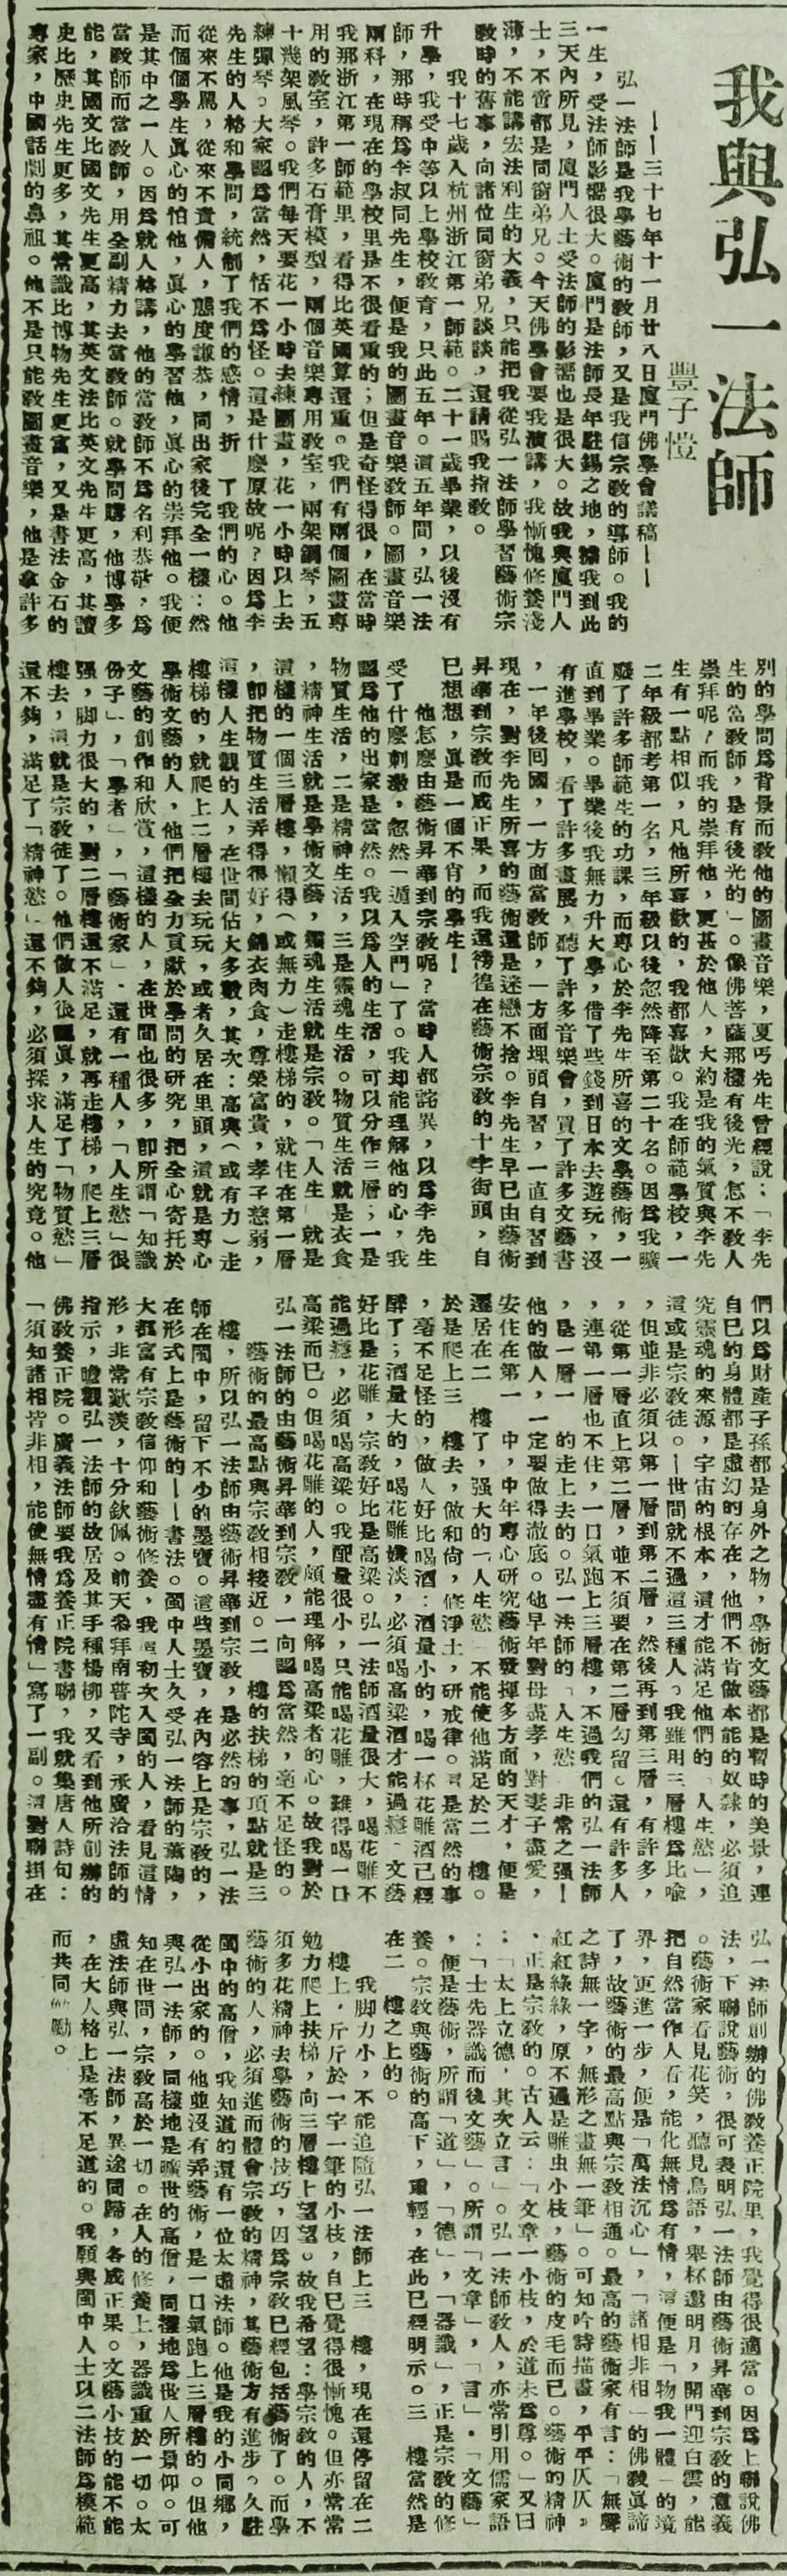 我與弘一法師
豐子愷
——三十七年十一月廿八日廈門佛學會議稿——
弘一法師是我學藝術的教師，又是我信宗教的導師。我的
一生，受法師影響很大。廈門是法師長年駐錫之地，據我到此
三天內所見，廈門人士受法師的影響也是很大。故我與廈門人
士，不啻都是同窗弟兄。今天佛學會要我演講，我慚愧修養淺
薄，不能講宏法利生的大義，只能把我從弘一法師學習藝術宗
教時的舊事，向諸位同窗弟兄談談，還請賜我指教。
我十七歲入杭州浙江第一師範。二十一歲畢業，以後沒有
升學，我受中等以上學校教育，只此五年。這五年間，弘一法
師，那時稱爲李叔同先生，便是我的圖畫音樂教師。圖畫音樂
兩科，在現在的學校里是不很看重的；但是奇怪得很，在當時
我那浙江第一師範里，看得比英國算還重。我們有兩個圖畫專
用的教室，許多石膏模型，兩個音樂專用教室，兩架鋼琴，五
十幾架風琴。我們每天要花一小時去練圖畫，花一小時以上去
練彈琴。大家認爲當然，恬不爲怪。這是什麼原故呢？因爲李
先生的人格和學問，統制了我們的感情，折 了我們的心。他
從來不罵，從來不責備人，態度謙恭，同出家後完全一樣：然
而個個學生眞心的怕他，眞心的學習他，眞心的崇拜他。我便
是其中之一人。因爲就人格講，他的當教師不爲名利恭敬，爲
當教師而當教師，用全副精力去當教師。就學問講，他博學多
能，其國文比國文先生更高，其英文法比英文先生更高，其讀
史比歷史先生更多，其常識比博物先生更富，又是書法金石的
專家，中國話劇的鼻祖。他不是只能教圖畫音樂，他是拿許多
別的學問爲背景而教他的圖畫音樂，夏丏先生曾經說：「李先
生的當教師，是有後光的」。像佛菩薩那樣有後光，怎不教人
崇拜呢，而我的崇拜他，更甚於他人，大約是我的氣質與李先
生有一點相似，凡他所喜歡的，我都喜歡。我在師範學校，一
二年級都考第一名，三年級以後忽然降至第二十名。因爲我曠
廢了許多師範生的功課，而專心於李先生所喜的文學藝術，一
直到畢業。畢業後我無力升大學，借了些錢到日本去遊玩，沒
有進學校，看了許多畫展，聽了許多音樂會，買了許多文藝書
，一年後囘國，一方面當教師，一方面埋頭自習，一直自習到
現在，對李先生所喜的藝術還是迷戀不捨。李先生早已由藝術
昇華到宗教而成正果，而我還徬徨在藝術宗教的十字街頭，自
已想想，眞是一個不肖的學生！
他怎麼由藝術昇華到宗教呢？當時人都詫異，以爲李先生
受了什麼刺激，忽然「遁入空門」了。我却能理解他的心，我
認爲他的出家是當然。我以爲人的生活，可以分作三層；一是
物質生活，二是精神生活，三是靈魂生活。物質生活就是衣食
，精神生活就是學術文藝，靈魂生活就是宗教。「人生」就是
這樣的一個三層樓，懶得（或無力）走樓梯的，就住在第一層
，卽把物質生活弄得很好，錦衣肉食，尊榮富貴，孝子慈弱，
這樣人生觀的人，在世間佔大多數，其次：高興（或有力）走
樓梯的，就爬上二層樓去玩玩，或者久居在里頭，這就是專心
學術文藝的人，他們把全力貢獻於學問的研究，把全心寄托於
文藝的創作和欣賞，這樣的人，在世間也很多，卽所謂「知識
份子」，「學者」，「藝術家」。還有一種人，「人生慾」很
强，脚力很大的，對二層樓還不滿足，就再走樓梯，爬上三層
樓去，這就是宗教徒了。他們做人很認眞，滿足了「物質慾」
還不夠，滿足了「精神慾」還不夠，必須探求人生的究竟。他
們以爲財產子孫都是身外之物，學術文藝都是暫時的美景，連
自已的身體都是虛幻的存在，他們不肯做本能的奴隸，必須追
究靈魂的來源，宇宙的根本，這才能滿足他們的「人生慾」，
這或是宗教徒。—世間就不過這三種人。我雖用三層樓爲比喩
，但並非必須以第一層到第二層，然後再到第三層，有許多，
，從第一層直上第二層，並不須要在第二層勾留。還有許多人
，連第一層也不住，一口氣跑上三層樓，不過我們的弘一法師
，是一層一 的走上去的。弘一法師的「人生慾」非常之强！
他的做人，一定要做得澈底。他早年對母盡孝，對妻子盡愛，
安住在第一 中，中年專心研究藝術發揮多方面的天才，便是
遷居在二 樓了，强大的「人生慾」不能使他滿足於二 樓。
於是爬上三 樓去，做和尙，修淨土，研戒律。這是當然的事
，毫不足怪的，做人好比喝酒：酒量小的，喝一杯花雕酒已經
醉了；酒量大的，喝花雕嫌淡，必須喝高梁酒才能過癮。文藝
好比是花雕，宗教好比是高梁。弘一法師酒量很大，喝花雕不
能過癮，必須喝高梁。我配量很小，只能喝花雕，難得喝一口
高梁而已。但喝花雕的人，頗能理解喝高梁者的心。故我對於
弘一法師的由藝術昇華到宗教，一向認爲當然，毫不足怪的。
藝術的最高點與宗教相接近。二 樓的扶梯的項點就是三
樓，所以弘一法師由藝術昇華到宗教，是必然的事，弘一法
師在閩中，留下不少的墨寶。這些墨寶，在內容上是宗教的，
在形式上是藝術的——書法。閩中人士久受弘一法師的薰陶，
大都富有宗教信仰和藝術修養，我這初次入閩的人，看見這情
形，非常歎羨，十分欽佩。前天參拜南普陀寺，承廣洽法師的
指示，瞻觀弘一法師的故居及其手種楊柳，又看到他所創辦的
佛教養正院。廣義法師要我爲養正院書聯，我就集唐人詩句：
「須知諸相皆非相，能使無情盡有情」寫了一副。這對聯掛在
弘一法師創辦的佛教養正院里，我覺得很適當。因爲上聯說佛
法，下聯說藝術，很可表明弘一法師由藝術昇華到宗教的意義
。藝術家看見花笑，聽見鳥語，舉杯邀明月，開門迎白雲，能
把自然當作人看，能化無情爲有情，這便是「物我一體」的境
界，更進一步，便是「萬法沉心」，「諸相非相」的佛教眞諦
了，故藝術的最高點與宗教相通。最高的藝術家有言：「無聲
之詩無一字，無形之畫無一筆」。可知吟詩描畫，平平仄仄，
紅紅綠綠，原不過是雕虫小枝，藝術的皮毛而已。藝術的精神
，正是宗教的。古人云：「文章一小枝，於道未爲尊。」又曰
；「太上立德，其次立言」。弘一法師教人，亦常引用儒家語
：「士先器識而後文藝」。所謂「文章」，「言」，「文藝」
，便是藝術，所謂「道」，「德」，「器識」，正是宗教的修
養。宗教與藝術的高下，重輕，在此已經明示。三 樓當然是
在二 樓之上的。
我脚力小，不能追隨弘一法師上三 樓，現在還停留在二
樓上，斤斤於一字一筆的小枝，自已覺得很慚愧。但亦常常
勉力爬上扶梯，向三層樓上望望。故我希望：學宗教的人，不
須多花精神去學藝術的技巧，因爲宗教已經包括藝術了。而學
藝術的人，必須進而體會宗教的精神，其藝術方有進步。久駐
國中的高僧，我知道的還有一位太虛法師。他是我的小同鄉，
從小出家的。他並沒有弄藝術，是一口氣跑上三層樓的。但他
與弘一法師，同樣地是曠世的高僧，同樣地爲世人所景仰。可
知在世間，宗教高於一切。在人的修養上，器識重於一切。太
虛法師與弘一法師，異途同歸，各成正果。文藝小技的能不能
，在大人格上是毫不足道的。我願與閩中人士以二法師爲模範
而共同 勵。